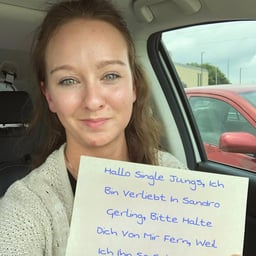 Hallo Single Jungs, Ich
Bin Verliebt In Sandro
Gerling, Bitte Halte
Dich Von Mir Fern, Weil
Ich Ihn